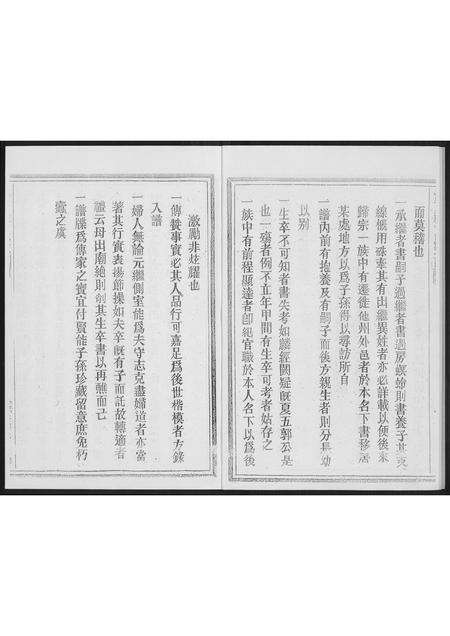 而莫稽也
一承繼者書嗣子過繼者書過房螟蛉則書養子其支
線俱用硃索其有出繼異姓者亦必詳載以便後來
歸宗一族中有遷徙他州外邑者於本名下書移居
某處地方以為子孫得以尋訪所自
一譜內前有抱養及有嗣子而後方親生者則分長幼
以別
一生卒不可知者書失考如麟經闕疑既夏五郭公是
也一殤者例不立年甲間有生卒可考者姑存之
一族中有前程顯達者卽紀官職於本人名下以爲後
激勵非炫躍也
一傳贊事實必其人品行可嘉足爲後世楷模者方錄
入譜
一婦人無論元繼側室能爲夫守志克盡婦道者亦當
著其行實表揚節操如夫卒旣有子而託故轉適者
禮云母出廟絶則刻其生卒書以再醮而已
一譜牒爲傳家之寶宜付賢能子孫珍藏留意庶免朽
蠹之虞